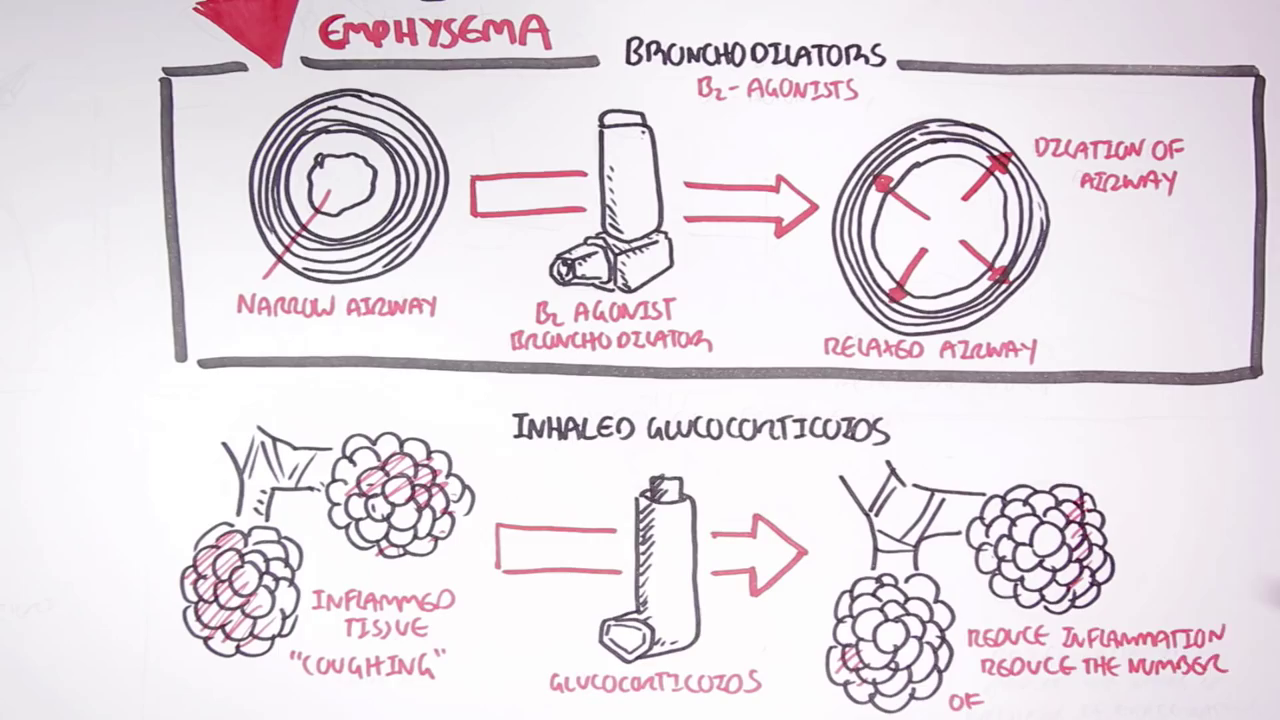 EMPHYSEMA
BRONCHODILATORS
B₂- AGONISTS
DILATION OF
AIRWAY
NARROW AIRWAY
B₂ AGONIST
BRONCHODILATOR
RELAXED AIRWAY
INHALED GLUCOCORTICOIDS
INFLAMMED
TISSUE
"COUGHING"
GLUCOCORTICOIDS
REDUCE INFLAMMATION
REDUCE THE NUMBER
OF